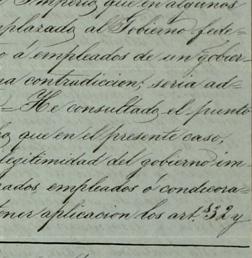 Imperio, que en algunos
mplazado al Gobierno fede-
o á empleados de un gobier-
na contradiccion; seria ad-
- He consultado el punto
que en el presente caso,
legitimidad del gobierno im-
rados empleados ó condecora-
tener aplicacion los art.s 32 y